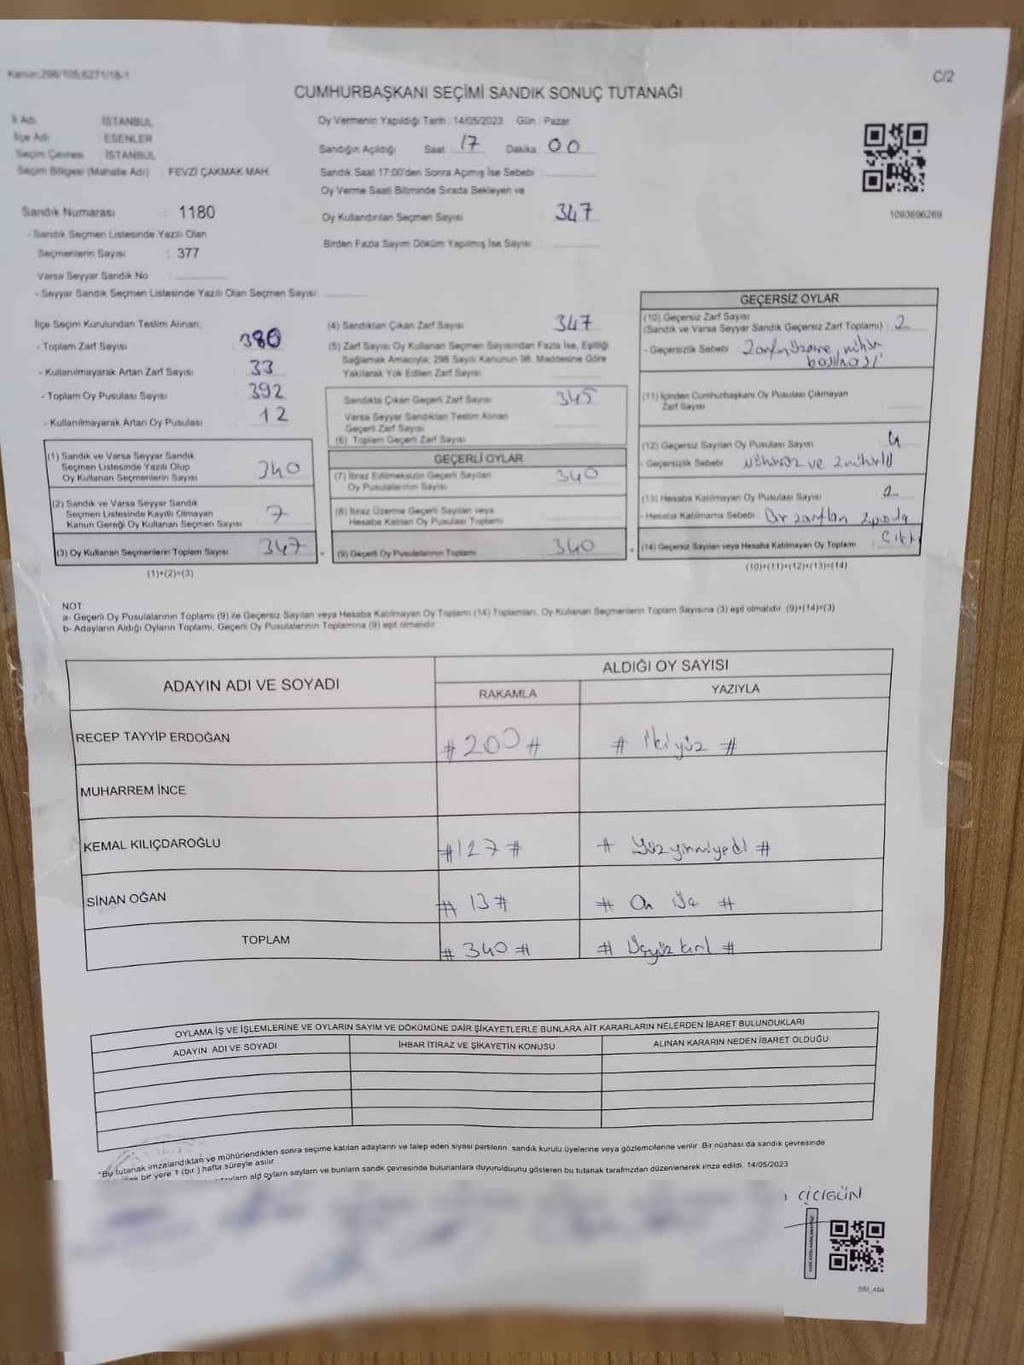 Kanun:298/105;6271/18-1
C/2
CUMHURBAŞKANI SEÇİMİ SANDIK SONUÇ TUTANAĞI
İl Adı İSTANBUL
İlçe Adı ESENLER
Seçim Çevresi İSTANBUL
Seçim Bölgesi (Mahalle Adı) : FEVZİ ÇAKMAK MAH.
Sandık Numarası : 1180
- Sandık Seçmen Listesinde Yazılı Olan
Seçmenlerin Sayısı : 377
Varsa Seyyar Sandık No
- Seyyar Sandık Seçmen Listesinde Yazılı Olan Seçmen Sayısı:
Oy Vermenin Yapıldığı Tarih : 14/05/2023 Gün : Pazar
Sandığın Açıldığı Saat 17 Dakika 00
Sandık Saat 17:00'den Sonra Açılmış İse Sebebi :
Oy Verme Saati Bitiminde Sırada Bekleyen ve
Oy Kullandırılan Seçmen Sayısı 347
Birden Fazla Sayım Döküm Yapılmış İse Sayısı :
1093696269
İlçe Seçim Kurulundan Teslim Alınan;
- Toplam Zarf Sayısı 380
- Kullanılmayarak Artan Zarf Sayısı 33
- Toplam Oy Pusulası Sayısı 392
- Kullanılmayarak Artan Oy Pusulası 12
(1) Sandık ve Varsa Seyyar Sandık
Seçmen Listesinde Yazılı Olup
Oy Kullanan Seçmenlerin Sayısı 340
(2) Sandık ve Varsa Seyyar Sandık
Seçmen Listesinde Kayıtlı Olmayan
Kanun Gereği Oy Kullanan Seçmen Sayısı 7
(3) Oy Kullanan Seçmenlerin Toplam Sayısı 347
(1)+(2)=(3)
(4) Sandıktan Çıkan Zarf Sayısı 347
(5) Zarf Sayısı Oy Kullanan Seçmen Sayısından Fazla İse, Eşitliği
Sağlamak Amacıyla; 298 Sayılı Kanunun 98. Maddesine Göre
Yakılarak Yok Edilen Zarf Sayısı
Sandıkta Çıkan Geçerli Zarf Sayısı 345
Varsa Seyyar Sandıktan Teslim Alınan
Geçerli Zarf Sayısı
(6) Toplam Geçerli Zarf Sayısı
GEÇERLİ OYLAR
(7) İtiraz Edilmeksizin Geçerli Sayılan
Oy Pusulalarının Sayısı 340
(8) İtiraz Üzerine Geçerli Sayılan veya
Hesaba Katılan Oy Pusulası Toplamı
(9) Geçerli Oy Pusulalarının Toplamı 340
GEÇERSİZ OYLAR
(10) Geçersiz Zarf Sayısı
(Sandık ve Varsa Seyyar Sandık Geçersiz Zarf Toplamı) 2
- Geçersizlik Sebebi 2 zarfın üzerine mühür
basılması
(11) İçinden Cumhurbaşkanı Oy Pusulası Çıkmayan
Zarf Sayısı
(12) Geçersiz Sayılan Oy Pusulası Sayısı 4
- Geçersizlik Sebebi mühürsüz ve 2 mühürlü
(13) Hesaba Katılmayan Oy Pusulası Sayısı
- Hesaba Katılmama Sebebi Bir zarftan 2 pusula
(14) Geçersiz Sayılan veya Hesaba Katılmayan Oy Toplamı : çıktı
(10)+(11)+(12)+(13)=(14)
NOT
a- Geçerli Oy Pusulalarının Toplamı (9) ile Geçersiz Sayılan veya Hesaba Katılmayan Oy Toplamı (14) Toplamları, Oy Kullanan Seçmenlerin Toplam Sayısına (3) eşit olmalıdır. (9)+(14)=(3)
b- Adayların Aldığı Oyların Toplamı, Geçerli Oy Pusulalarının Toplamına (9) eşit olmalıdır.
ADAYIN ADI VE SOYADI
ALDIĞI OY SAYISI
RAKAMLA
YAZIYLA
RECEP TAYYİP ERDOĞAN #200# # İkiyüz #
MUHARREM İNCE
KEMAL KILIÇDAROĞLU #127# # Yüzyirmiyedi #
SİNAN OĞAN # 13# # On üç #
TOPLAM # 340 # # Üçyüz kırk #
OYLAMA İŞ VE İŞLEMLERİNE VE OYLARIN SAYIM VE DÖKÜMÜNE DAİR ŞİKAYETLERLE BUNLARA AİT KARARLARIN NELERDEN İBARET BULUNDUKLARI
ADAYIN ADI VE SOYADI
İHBAR İTİRAZ VE ŞİKAYETİN KONUSU
ALINAN KARARIN NEDEN İBARET OLDUĞU
*Bu tutanak imzalandıktan ve mühürlendikten sonra seçime katılan adayların ve talep eden siyasi partilerin sandık kurulu üyelerine veya gözlemcilerine verilir. Bir nüshası da sandık çevresinde
bir yere 1 (bir) hafta süreyle asılır.
aldığı oyların sayılarını ve bunların sandık çevresinde bulunanlara duyurulduğunu gösteren bu tutanak tarafımızdan düzenlenerek imza edildi. 14/05/2023
ÇİÇİGÜN